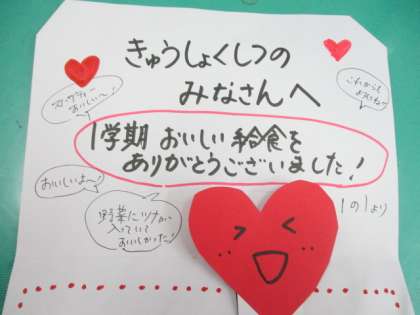 きゅうしょくしつの
みなさんへ
おいしい〜!
これからも
1学期 おいしい給食を
ありがとうございました!
おいしいよ〜!
野菜にツナが
入っていて
おいしかった!
1の1より